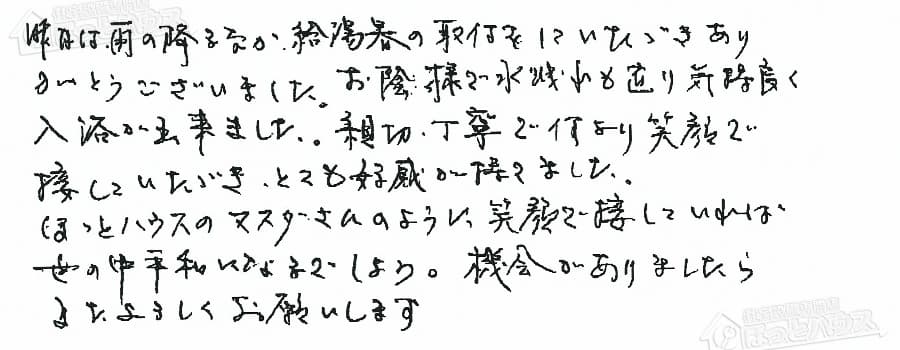 昨日は、雨の降る中、給湯器の取付をしていただきあり
がとうございました。お陰様で水漏れも直り気持良く
入浴が出来ました。親切、丁寧で何より笑顔で
接していただき、とても好感が持てました。
ほっとハウスのマスダさんのように、笑顔で接していれば
世の中平和になるでしょう。機会がありましたら
またよろしくお願いします
住宅設備専門店
ほっとハウス
住宅設備専門店
ほっとハウス